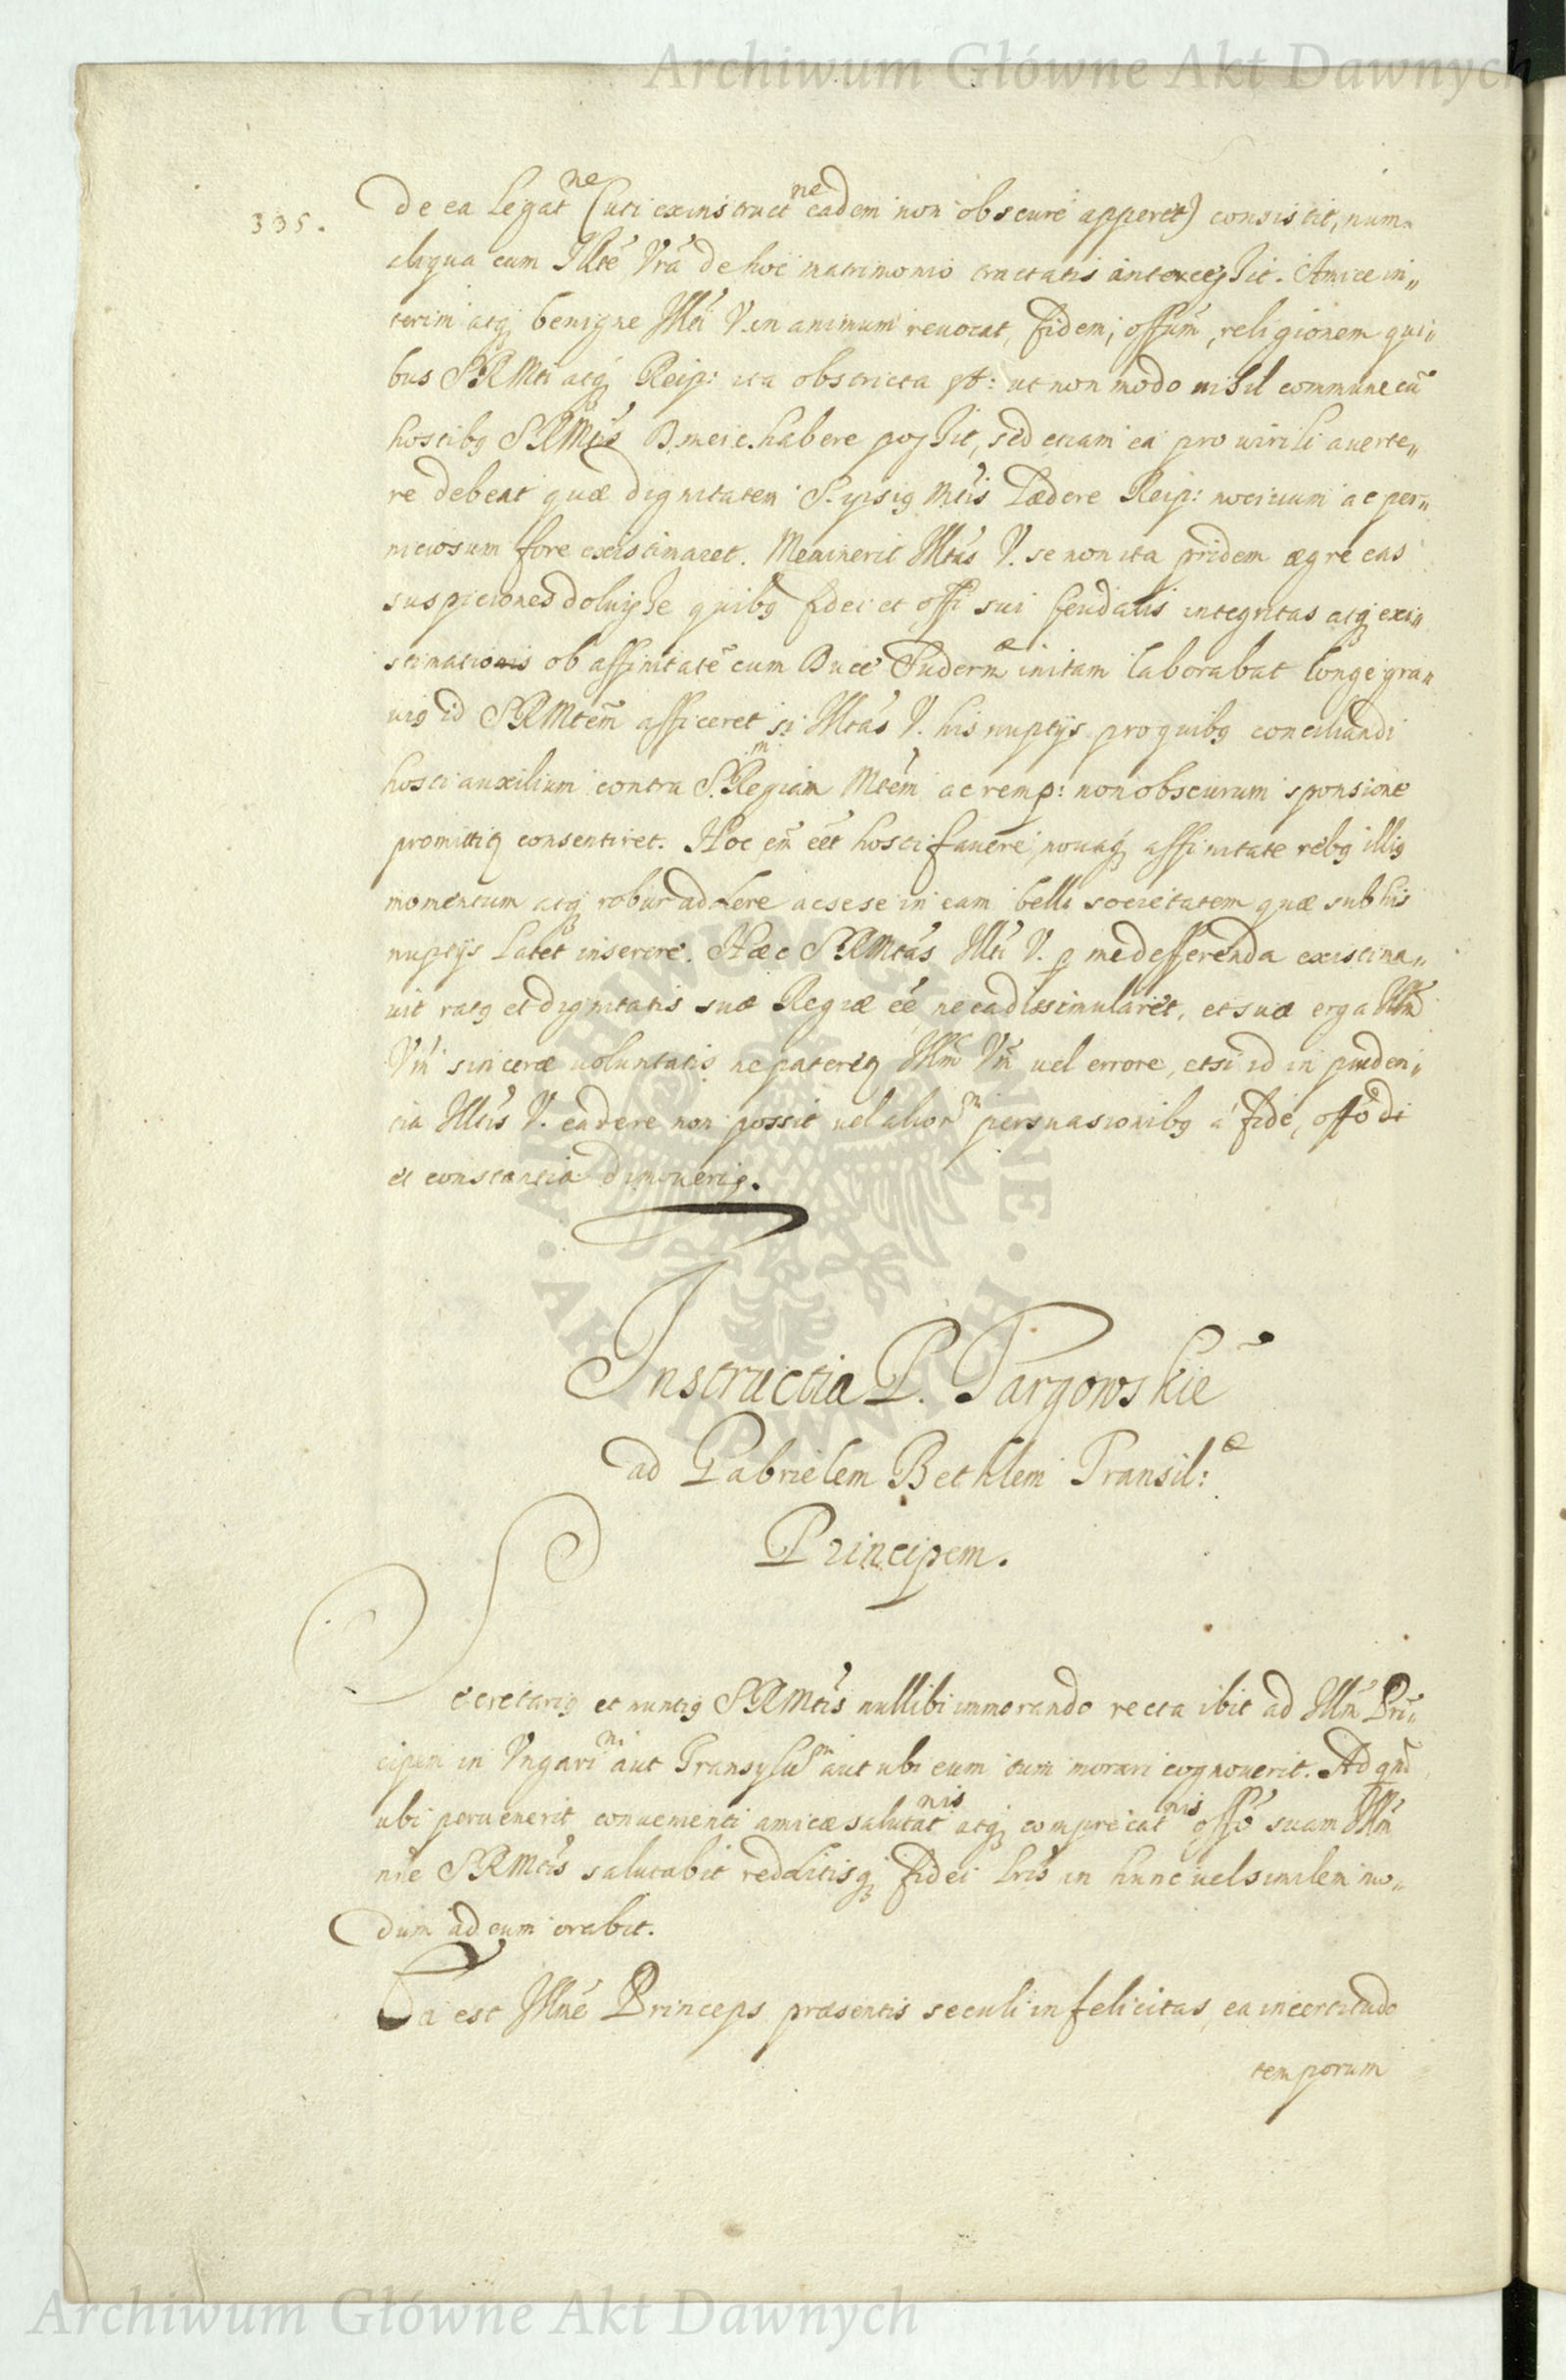 Archiwum Główne Akt Dawnych
335.
de ea Legat^ne (uti ex instruct^ne eadem non obscure apperet) consistit, num
aliqua cum Illte Vra de hoc matrimonio tractatis intercessit. Amice in„
terim atq benigne Illti V. in animum revocat, fidem, offum, religionem qui„
bus SRMti atq Reip: ita obstricta st: ut non modo nihil commune cū
hostibq SRMtis D. mei c. habere possit, sed etiam ea pro virili averte„
re debeat quæ dignitatem S. ipsiq Mtis Lædere Reip: nocivum ac per„
niciosum fore existimaret. Meminerit Illtas V. se non ita pridem ægre eas
suspiciones doluisse quibq fidei et offi sui feudalis integritas atq exi„
stimationis ob affinitatē cum Duce Juderm^æ initam laborabat longe gra„
viq id SRMtem afficeret si Illtas V. his nuptijs pro quibq conciliandi
hosti auxilium contra S. Regiam^m Mtem ac remp: non obscurum sponsione
promittiq consentiret. Hoc em eet hosti favere, novaq affinitate rebq illiq
momentum atq robur addere ac sese in eam belli societatem quæ sub his
nuptijs latet inserere. Hæc SRMtas Illti V. p me defferenda existima„
vit ratq et dignitatis suæ Regiæ ee ne ea dissimularet, et suæ erga Illm
Vm sinceræ voluntatis ne pateretq Illm Vm vel errore, etsi id in pruden„
tia Illtis V. cadere non possit vel alior^m persuasionibq a fide, offo di
et constantia dimoveriq.
Instructia P. Targowskie
ad Gabrielem Bethlem Transil:^æ
Principem.
Secretariq et nuntiq SRMtis nullibi immorando recta ibit ad Illm Prin„
cipem in Vngari^m aut Transylv^m aut ubi eum tum morari cognoverit. Ad qm
ubi pervenerit convenienti amicæ salutat^nis atq comprecat^nis offo suam Illm
nne SRMtis salutabit redditisq fidei lris in hunc vel similem mo„
dum ad eum orabit.
Ea est Illne Princeps præsentis seculi infelicitas, ea incertitudo
temporum
Archiwum Główne Akt Dawnych